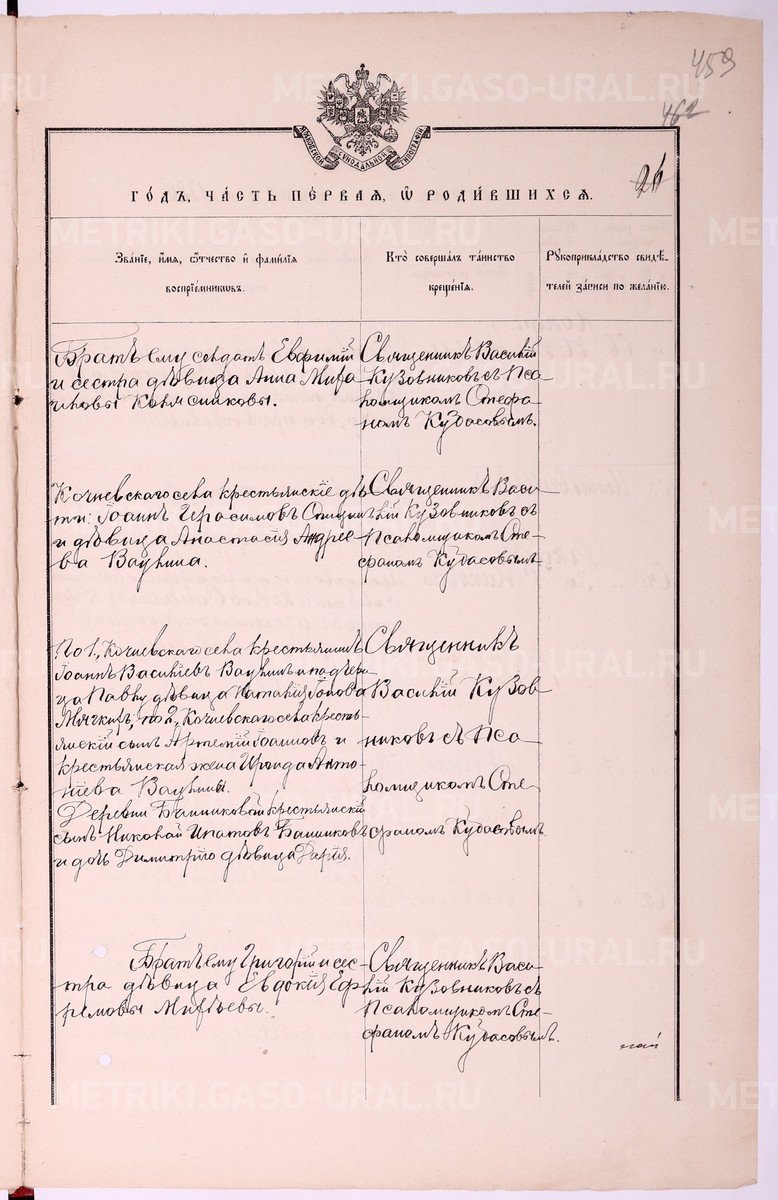 459
462
26
СѴНОДАЛЬНОЙ
ТИПОГРАФІИ
ГОДЪ, ЧАСТЬ ПЕРВАЯ, Ѡ РОДИВШИХСЯ.
Званіе, имя, ѿчество и фамилія
воспріемниковъ.
Кто совершалъ таинство
крещенія.
Рукоприкладство свидѣ-
телей записи по желанію.
Братъ ему солдатъ Евфимій
и сестра дѣвица Анна Мира
новы
Священникъ Василій
Кузовниковъ съ Пса
ломщикомъ Стефа
номъ Кудасовымъ.
Кочневскаго села крестьянскіе дѣ
ти: Іоаннъ Герасимовъ
и дѣвица Анастасія Андрее
ва Ваулина.
Священникъ Васи
лій Кузовниковъ съ
Псаломщикомъ Сте-
фаномъ Кудасовымъ
По 1, Кочневскаго села крестьянинъ
Іоаннъ Васильевъ Ваулинъ и
Павлу дѣвица Наталія
по 2, Кочневскаго села кресть-
янскій сынъ Артемій Іоанновъ и
крестьянская жена Ираида Анто
ніева Ваулины.
Деревни Банниковой крестьянскій
сынъ Николай Ипатовъ Банниковъ
и дочь Димитрію дѣвица Дарія.
Священникъ
Василій Кузов
никовъ съ Пса
ломщикомъ Сте
фаномъ Кудасовымъ
Братъ ему Григорій и сес-
тра дѣвица Евдокія Еф
ремовы
Священникъ Васи
лій Кузовниковъ съ
Псаломщикомъ Сте-
фаномъ Кудасовымъ.
METRIKI.GASO-URAL.RU